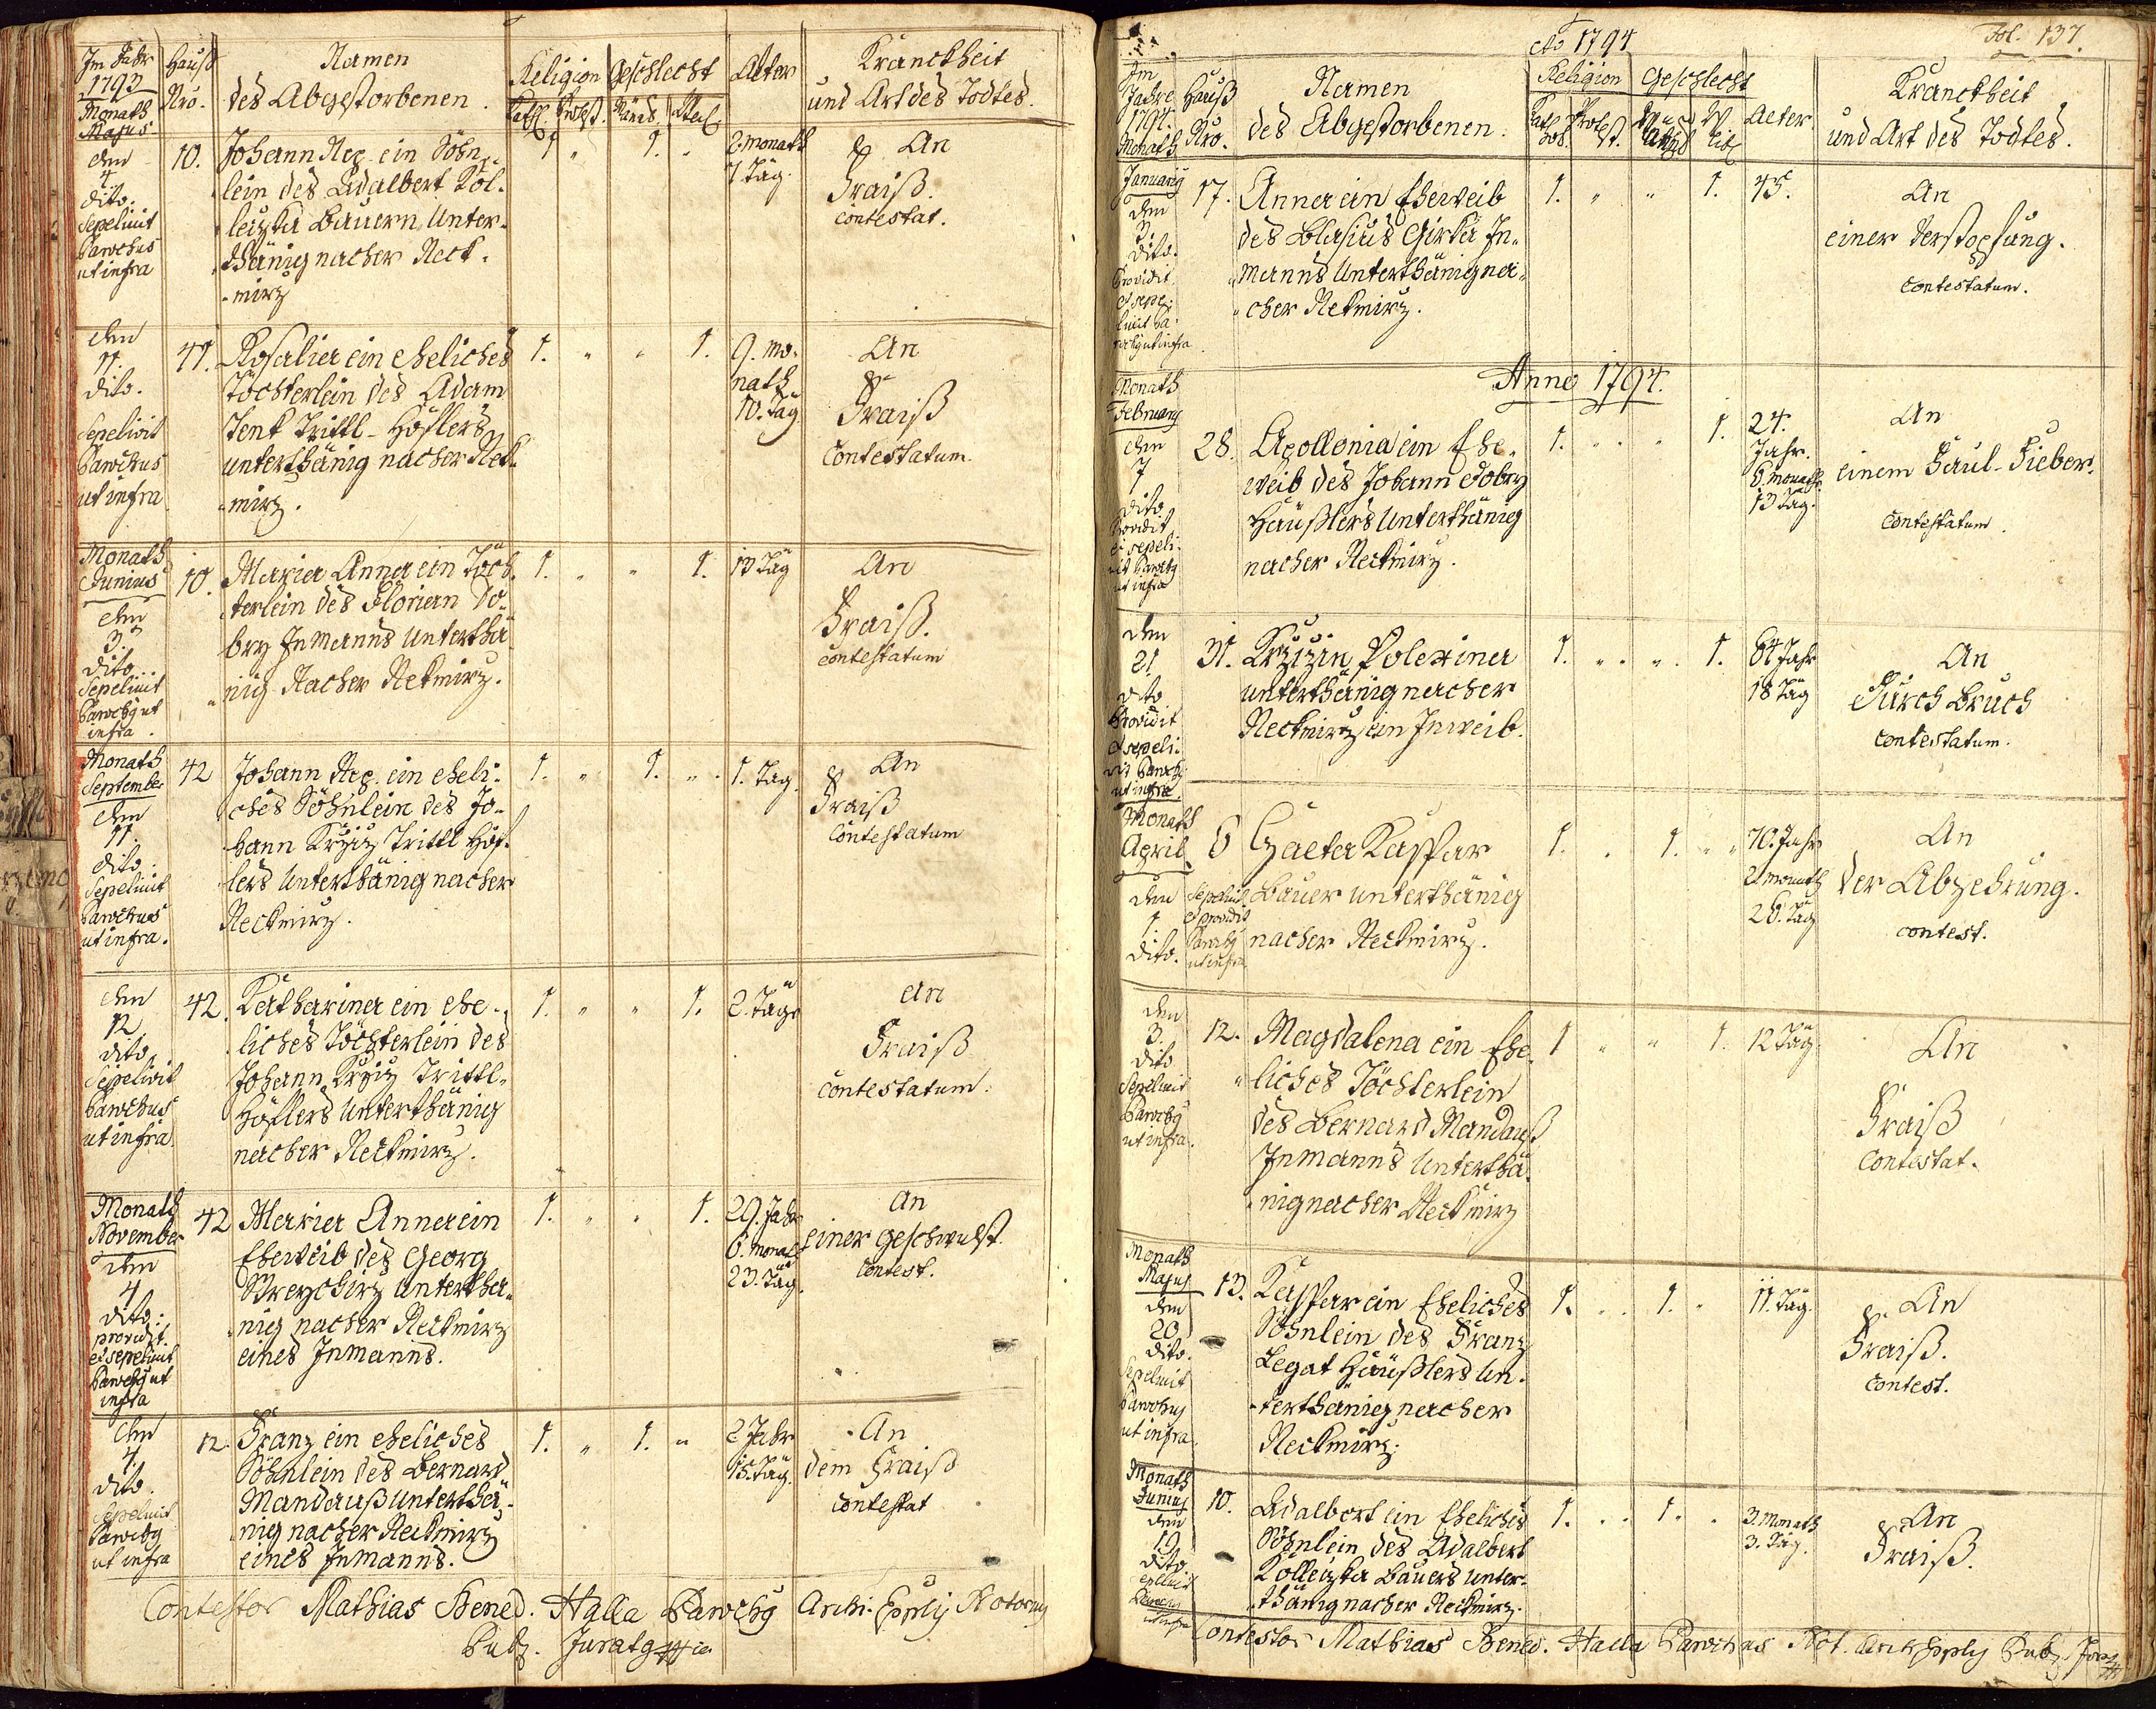 Im Jahr
1793
Monath
Majus
Hauß
Nro.
Namen
des Abgestorbenen.
Religion
Geschlecht
Alter
Kranckheit
und Art des Todtes.
den
4
dito.
Sepelivit
Parochus
ut infra
10.
Johann Nep. ein Söhn-
lein des Adalbert Kol-
leizka Bauern, Unter-
thänig nacher Neck-
mirz
1 " 1. "
2. Monath
7 Täg.
An
Fraiß.
contestat.
den
11.
dito.
Sepelivit
Parochus
ut infra
41.
Rosalia ein eheliches
Töchterlein des Adam
Jenk Trittl-Höflers
unterthänig nacher Nek-
mirz.
1. " " 1.
9. Mo-
nath
10. Täg
An
Fraiß
Contestatum.
Monath
Junius
den
3.
dito.
Sepelivit
Paroch9 ut
infra.
10.
Maria Anna ein Töch-
terlein des Florian Do-
bry Inmanns Unterthä-
nig Nacher Nekmirz.
1. " " 1.
13 Täg
An
Fraiß.
contestatum
Monath
September
den
11.
dito.
Sepelivit
Parochus
ut infra.
42
Johann Nep. ein eheli-
ches Söhnlein des Jo-
hann Krziz Trittl Höf-
lers Unterthänig nacher
Neckmirz.
1. " 1. "
1. Tag.
An
Fraiß
Contestatum
den
12
dito.
Sepelivit
Parochus
ut infra
42.
Katharina ein ehe-
liches Töchterlein des
Johann Krziz Trittl-
Höflers Unterthänig
nacher Neckmirz.
1. " " 1.
2. Täge
An
Fraiß
contestatum.
Monath
November
den
4
dito.
providit
et sepelivit
Paroch9 ut
infra
42
Maria Anna ein
Eheweib des Georg
unterthä-
nig nacher Neckmirz
eines Inmanns.
1. " " 1.
29. Jahr
6. Monat
23. Täg.
An
einer Geschwulst.
Contest.
den
4.
dito.
Sepelivit
Paroch9
ut infra
12.
Franz ein eheliches
Söhnlein des Bernard
Mandauß Unterthä-
nig nacher Neckmirz
eines Inmanns.
1. " 1. "
2 Jahr
15. Täg.
An
dem Fraiß
contestat
Contestor Mathias Bened. Halla Paroch9 Archi-Epply Notarius
Pub. Jurat9
Ao 1794
Fol. 137.
Im
Jahre
1794.
Monath
Hauß
Nro.
Namen
des Abgestorbenen.
Religion
Geschlecht
Alter
Kranckheit
und Art des Todtes.
January
den
3.
dito.
Providit
et sepe-
livit Pa-
roch9 ut infra
17.
Anna ein Eheweib
des Blasius Girka In-
manns Unterthänig na-
cher Nekmirz.
1. " " 1.
45.
An
einer Verstopfung.
Contestatum.
Anno 1794.
Monath
February
den
7
dito
Providit
et sepeli-
vit Paroch9
ut infra
28.
Apollonia ein Ehe-
weib des Johann Dobry
Häußlers Unterthänig
nacher Neckmirz.
1. " " 1.
24.
Jahr.
6. Monath.
13 Täg.
An
einem Faul-Fieber.
Contestatum.
den
21
dito
Providit
et sepeli-
vit Paroch9
ut infra
31.
Krzizin Polexina
unterthänig nacher
Neckmirz ein Inweib.
1. " " 1.
64 Jahr
18 Täg
An
Durch Bruch
Contestatum.
Monath
April
den
1.
dito.
6
Sepelivit
et providit
Paroch9
ut infra
Kaspar
Bauer unterthänig
nacher Neckmirz.
1. " 1. "
70. Jahr
2 monath
26. Täg
An
der Abzehrung.
contest.
den
3.
dito
Sepelivit
Paroch9
ut infra.
12.
Magdalena ein Ehe-
liches Töchterlein
des Bernard Mandauß
Inmanns Unterthä-
nig nacher Neckmirz
1 " " 1.
12 Täg
An
Fraiß
Contestat.
Monath
Majus
den
20
dito.
Sepelivit
Parochus
ut infra
13.
Kaspar ein Eheliches
Söhnlein des Franz
Legat Häußlers Un-
terthänig nacher
Neckmirz.
1. " 1. "
11. Täg.
An
Fraiß.
Contest.
Monath
Junius
den
19
dito
Sepelivit
Paroch9
ut infra
10.
Adalbert ein Eheliches
Söhnlein des Adalbert
Kolleizka Bauers Unter-
thänig nacher Neckmirz.
1. " 1. "
3. Monath
3. Täg.
An
Fraiß.
Contestor Mathias Bened. Halla Parochus Not. Archi Epply Pub. Jur.